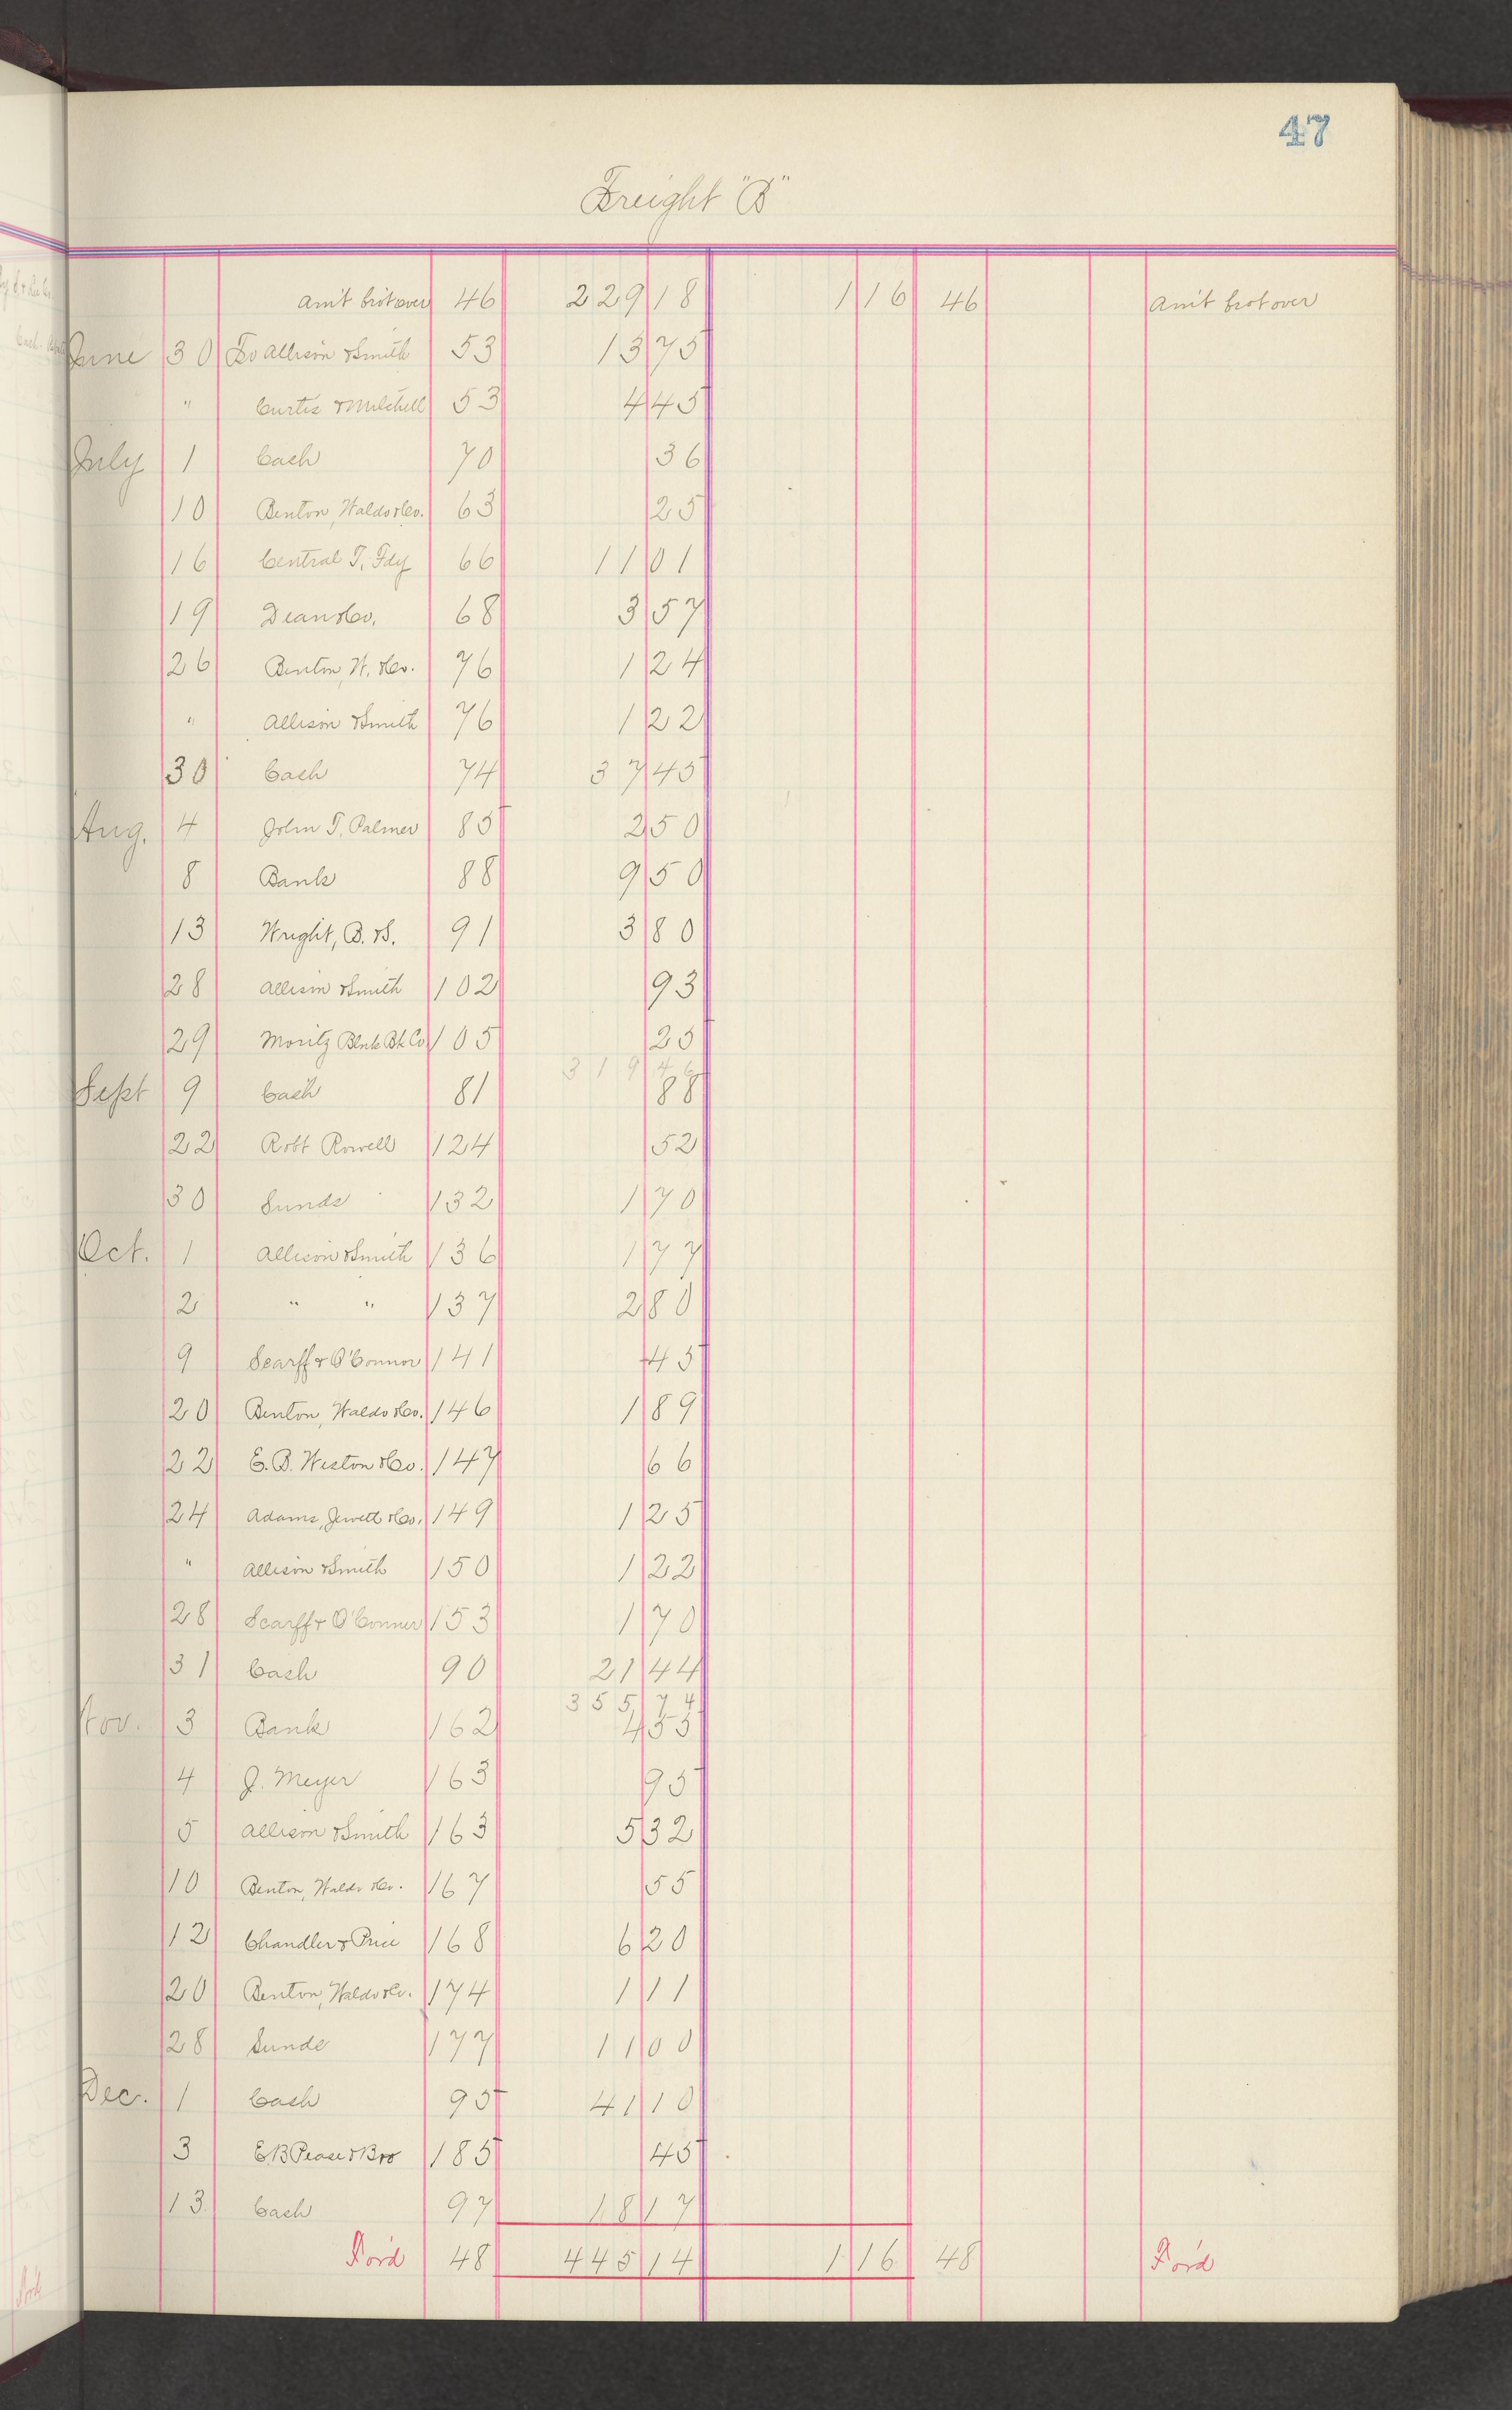 47
Freight "B"
Am't bro't over 46 229 18 1 16 46 Am't bro't over
June 30 To Allison & Smith 53 13 75
" Curtis & Mitchell 53 4 45
July 1 Cash 70 36
10 Benton, Waldo & Co. 63 25
16 Central T. Fdy 66 11 01
19 Dean & Co. 68 3 57
26 Benton, W. & Co. 76 1 24
" Allison & Smith 76 1 22
30 Cash 74 37 45
Aug. 4 John T. Palmer 85 2 50
8 Bank 88 9 50
13 Wright, B. & S. 91 3 80
28 Allison & Smith 102 93
29 Moritz Blnk Bk Co 105 25
319 46
Sept 9 Cash 81 88
22 Robt Rowell 124 52
30 Sunds 132 1 70
Oct. 1 Allison & Smith 136 1 77
2 " " 137 2 80
9 Scarff & O'Connor 141 45
20 Benton, Waldo & Co. 146 1 89
22 E. B. Weston & Co. 147 66
24 Adams, Jewett & Co. 149 1 25
" Allison & Smith 150 1 22
28 Scarff & O'Conner 153 1 70
31 Cash 90 21 44
355 74
Nov. 3 Bank 162 4 55
4 J. Meyer 163 95
5 Allison & Smith 163 5 32
10 Benton, Waldo & Co. 167 55
12 Chandler & Price 168 6 20
20 Benton, Waldo & Co. 174 1 11
28 Sunds 177 11 00
Dec. 1 Cash 95 41 10
3 E B Pease & Bro 185 45
13 Cash 97 18 17
For'd 48 445 14 1 16 48 For'd